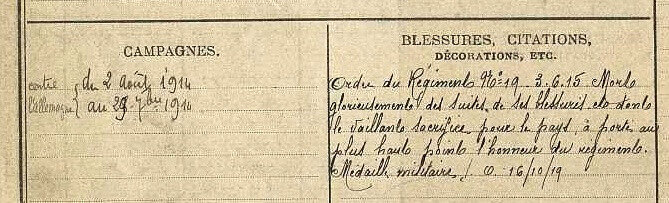 CAMPAGNES.
contre l'Allemagne
du 2 Août 1914
au 29 7bre 1914
BLESSURES, CITATIONS,
DÉCORATIONS, ETC.
Ordre du Régiment No 19 3.6.15 Mort
glorieusement des suites de ses blessures et dont
le vaillant sacrifice pour le pays, a porté au
plus haut point l'honneur du régiment.
Médaille militaire J. O 16/10/19